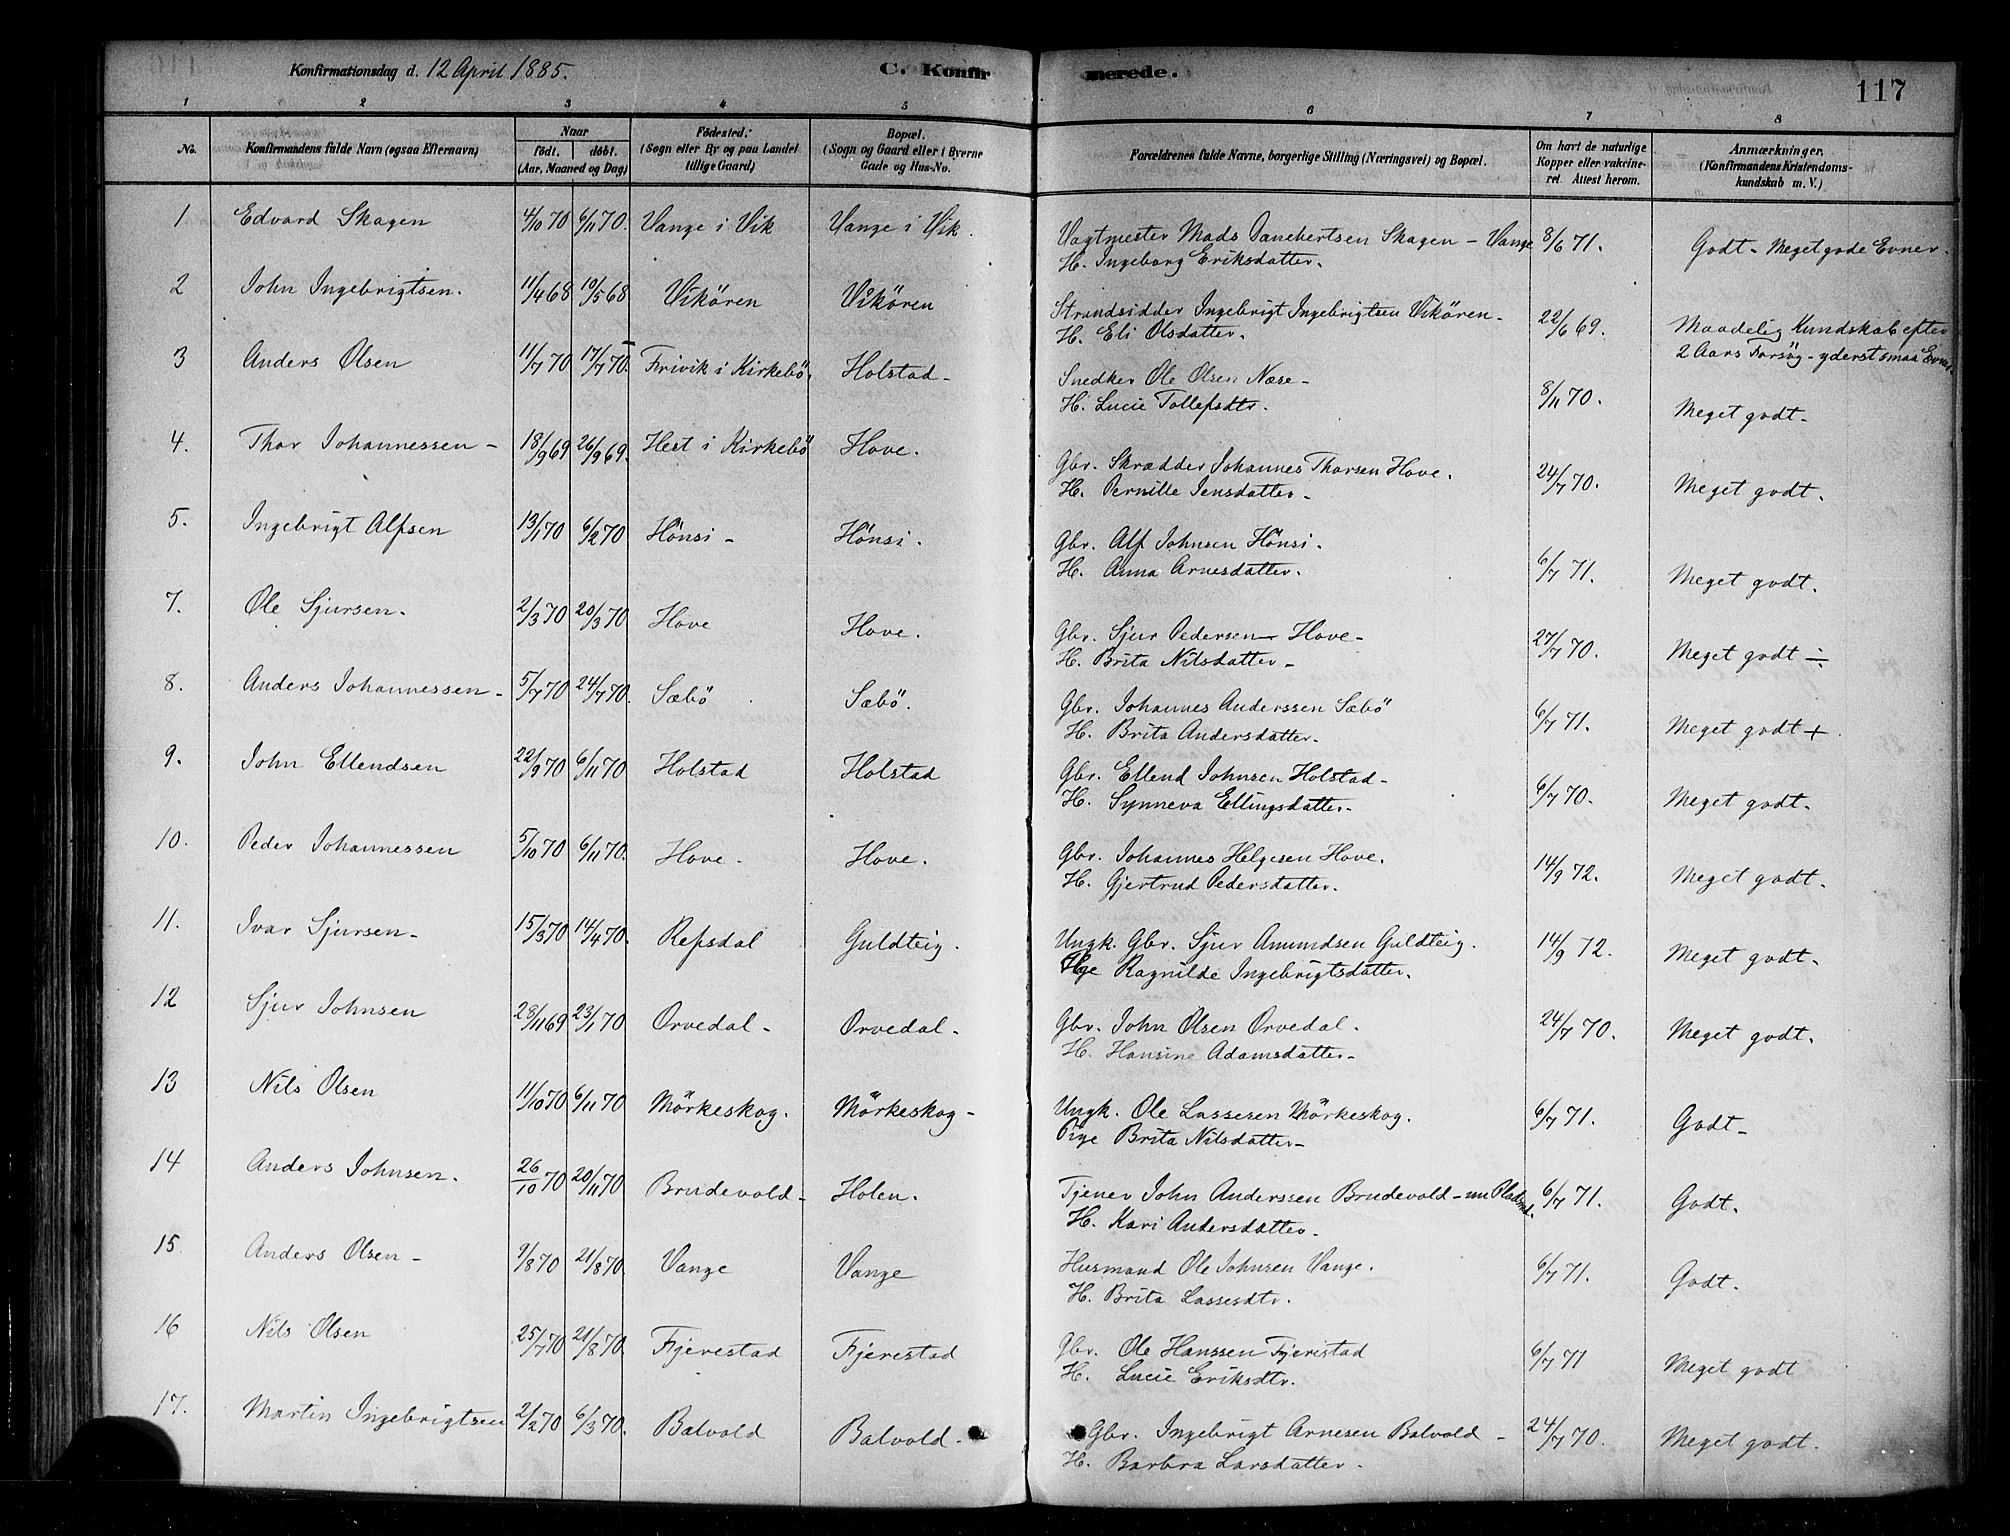 Konfirmationsdag d. 12 April 1885.
C. Konfirmerede.
117
1 2 3 4 5 6 7 8
No. | Konfirmandens fulde Navn (ogsaa Efternavn) | Naar født. døbt. (Aar, Maaned og Dag) | Fødested. (Sogn eller By og paa Landet tillige Gaard) | Bopæl. (Sogn og Gaard eller i Byerne Gade og Hus-No. | Forældrenes fulde Navne, borgerlige Stilling (Næringsvei) og Bopæl. | Om havt de naturlige Kopper eller vakcineret. Attest herom. | Anmærkninger, (Konfirmandens Kristendomskundskab m. V.)
1 Edvard Skagen 4/10 70 6/11 70. Vange i Vik Vange i Vik. Vagtmester Mads Danchertsen Skagen - Vange 8/6 71. Godt - Meget gode Evner.
H. Ingeborg Eriksdatter.
2 John Ingebrigtsen. 11/4 68 10/5 68 Vikören Vikören Strandsidder Ingebrigt Ingebrigtsen Vikören - 22/6 69. Maadelig Kundskab efter
H. Eli Olsdatter. 2 Aars Forsög - yderst smaa Evner.
3 Anders Olsen 11/7 70 17/7 70. Frivik i Kirkebö. Holstad - Snedker Ole Olsen Nese - 8/11 70. Meget godt -
H. Lucie Tollefsdtr.
4. Thor Johannessen - 18/9 69 26/9 69. Hest i Kirkebö Hove. Gbr. Skrædder Johannes Thorsen Hove. 24/7 70. Meget godt.
H. Pernille Jensdatter -
5. Ingebrigt Alfsen 13/1 70 6/2 70 Hönsi - Hönsi. Gbr. Alf Johnsen Hönsi. 6/7 71. Meget godt.
H. Anna Arnesdatter.
7. Ole Sjursen. 2/3 70 20/3 70 Hove Hove. Gbr. Sjur Pedersen Hove - 27/7 70. Meget godt ÷
H. Brita Nilsdatter -
8. Anders Johannessen - 5/7 70 24/7 70. Sæbö Sæbö. Gbr. Johannes Anderssen Sæbö 6/7 71. Meget godt +
H. Brita Andersdatter.
9. John Ellendsen 22/9 70 6/11 70 Holstad Holstad Gbr. Ellend Johnsen Holstad - 6/7 70. Meget godt.
H. Synneva Ellingsdatter.
10. Peder Johannessen 5/10 70 6/11 70. Hove. Hove. Gbr. Johannes Helgesen Hove. 14/9 72. Meget godt.
H. Gjertrud Pedersdatter.
11. Ivar Sjursen - 15/3 70 14/4 70. Refsdal Guldteig. Ungk. Gbr. Sjur Amundsen Guldteig. 14/9 72. Meget godt.
Pige Ragnilde Ingebrigtsdatter.
12 Sjur Johnsen 28/11 69 23/1 70 Orvedal - Orvedal - Gbr. John Olsen Orvedal. 24/7 70. Meget godt.
H. Hansine Adamsdatter -
13 Nils Olsen 11/10 70 6/11 70 Mörkeskog. Mörkeskog - Ungk. Ole Lassesen Mörkeskog. 6/7 71. Godt -
Pige Brita Nilsdatter -
14 Anders Johnsen. 26/10 70 20/11 70 Brudevold - Holen. Tjener John Anderssen Brudevold - nu Pladsmd. 6/7 71. Godt.
H. Kari Andersdatter.
15 Anders Olsen - 9/8 70 21/8 70. Vange Vange Husmand Ole Johnsen Vange. 6/7 71. Godt.
H. Brita Lassesdtr.
16 Nils Olsen 25/7 70 21/8 70. Fjerestad Fjerestad Gbr. Ole Hanssen Fjerestad 6/7 71 Meget godt
H. Lucie Eriksdtr.
17. Martin Ingebrigtsen 2/2 70 6/3 70. Balvold Balvold. Gbr. Ingebrigt Arnesen Balvold - 24/7 70. Meget godt.
H. Barbra Larsdatter.